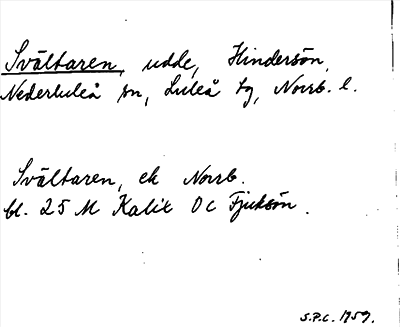 Svältaren, udde, Hindersön,
Nederluleå sn, Luleå tg, Norrb. l.
Svältaren, ek Norrb.
bl. 25 M Kalix OC Fjuksön.
S.P.C. 1959.